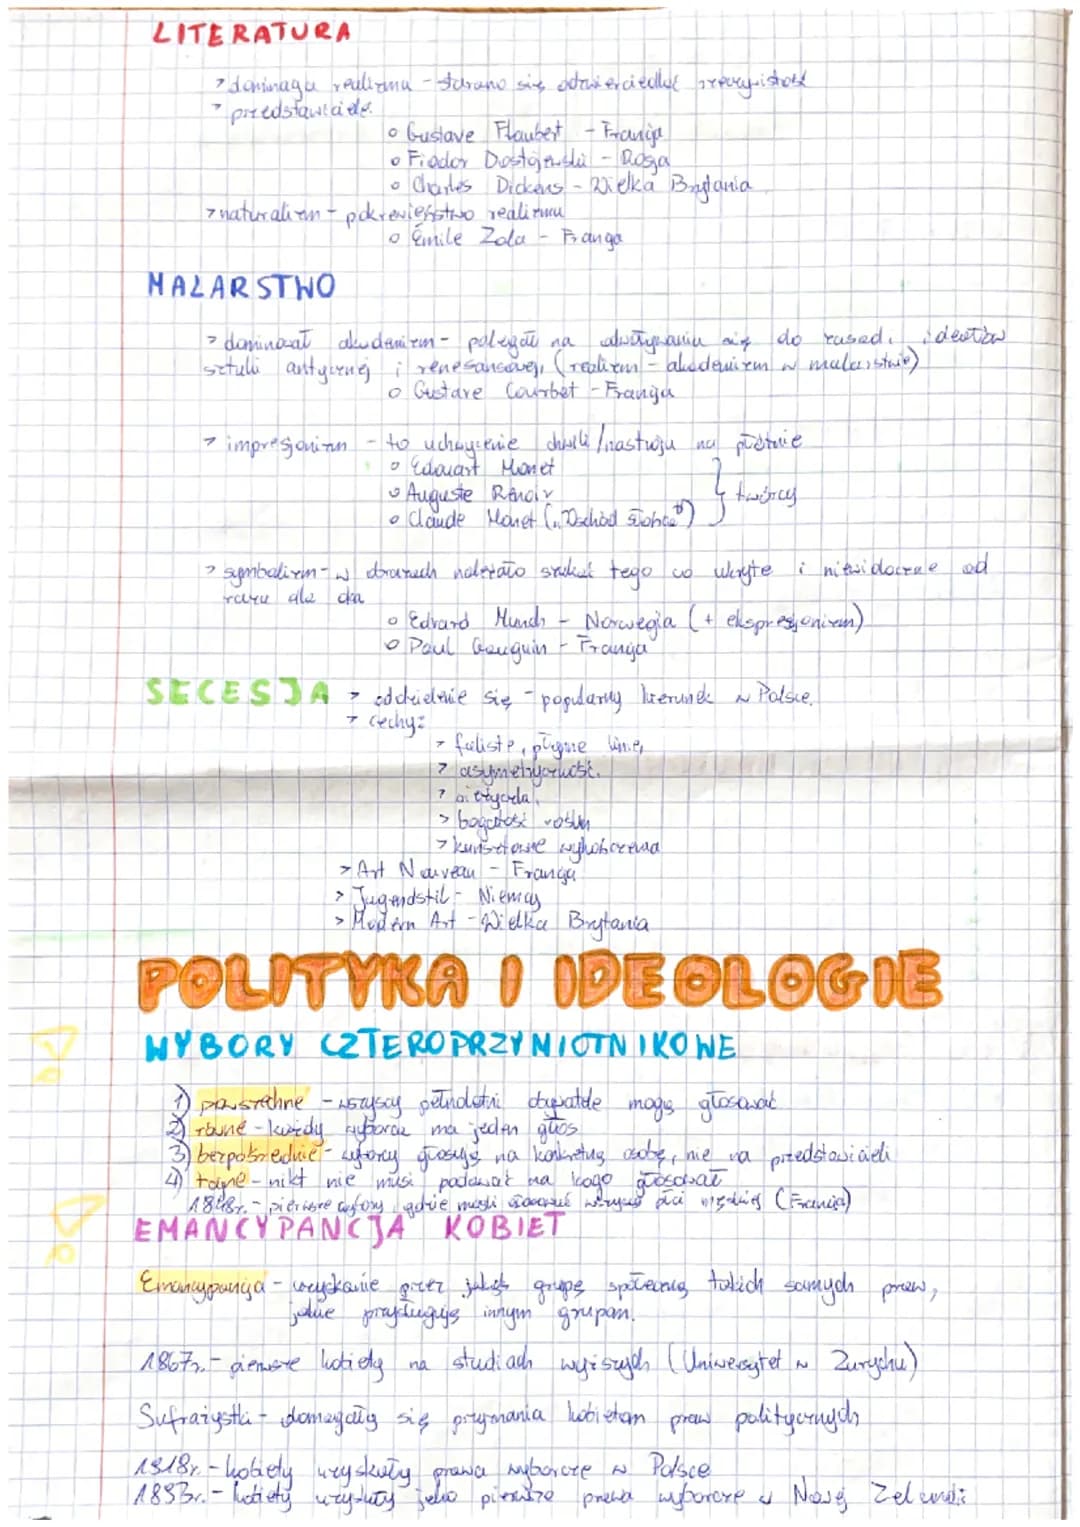 LITERATURA
> dominacja realizmu - starano się odzwierciedlać rzeczywistość
> przedstawiciele:
o Gustave Flaubert - Francja
o Fiodor Dostojewski - Rosja
o Charles Dickens - Wielka Brytania
> naturalizm - pokrewieństwo realizmu
o Émile Zola - Francja
MALARSTWO
> dominował akademizm - polegał na odwoływaniu się do zasad i ideałów
sztuki antycznej i renesansowej, (realizm - akademizm w malarstwie)
o Gustave Courbet - Francja
> impresjonizm - to uchwycenie chwili/nastroju na płótnie
o Edouart Manet
o Auguste Renoir } twórcy
o Claude Monet („Wschód słońca")
> symbolizm - w obrazach należało szukać tego co ukryte i niewidoczne od
razu dla oka
o Edvard Munch - Norwegia (+ ekspresjonizm)
o Paul Gauguin - Francja
SECESJA > oddzielenie się - popularny kierunek w Polsce.
> cechy:
> faliste, płynne linie,
> asymetryczność,
> bogatość roślin
> Art Nouveau - Francja
> Jugendstil - Niemcy
> Modern Art - Wielka Brytania
POLITYKA I IDEOLOGIE
WYBORY CZTEROPRZYMIOTNIKOWE
1) powszechne - wszyscy pełnoletni obywatele mogą głosować
2) równe - każdy wyborca ma jeden głos
3) bezpośrednie - wyborcy głosują na konkretną osobę, nie na przedstawicieli
4) tajne - nikt nie musi podawać na kogo głosował
1848r. - pierwsze wybory, gdzie mogli głosować wszyscy płci męskiej (Francja)
EMANCYPANCJA KOBIET
Emancypancja - uzyskanie przez jakąś grupę społeczną takich samych praw,
jakie przysługują innym grupom.
1867r. - pierwsze kobiety na studiach wyższych (Uniwersytet w Zurychu)
Sufrażystki - domagały się przyznania kobietom praw politycznych
1918r. - kobiety uzyskały prawa wyborcze w Polsce
1893r. - kobiety uzyskały jako pierwsze prawa wyborcze w Nowej Zelandii